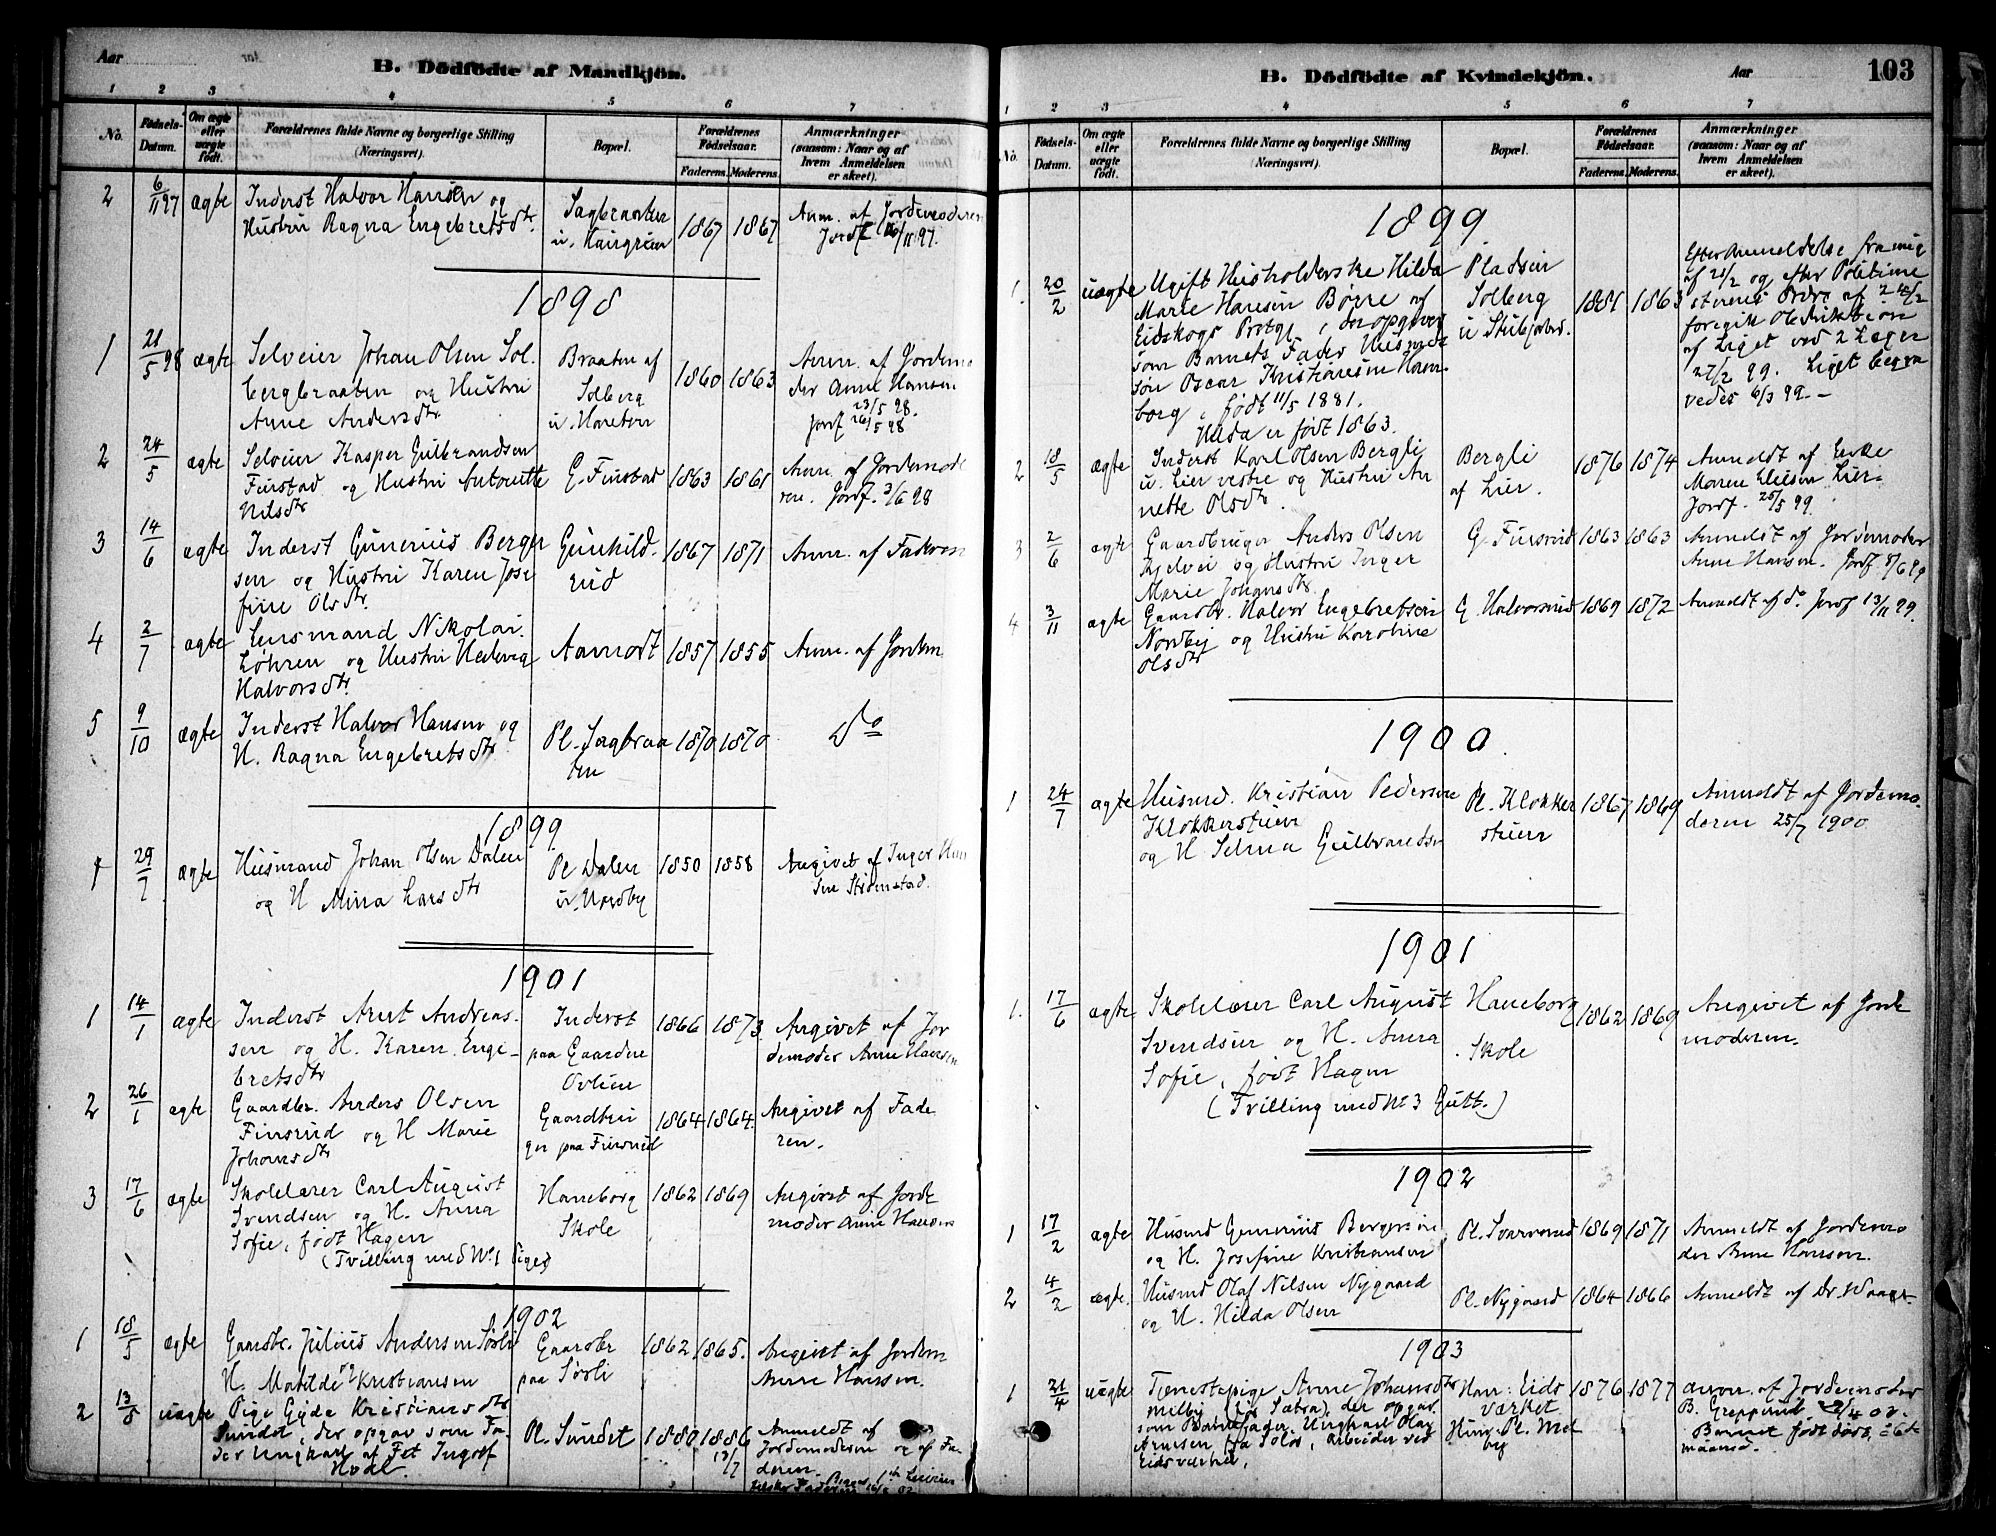 Aar
B. Dödfödte af Mandkjön.
1 2 3 4 5 6 7
No. Födsels-Datum. Om ægte eller uægte födt. Forældrenes fulde Navne og borgerlige Stilling (Næringsvei). Bopæl. Forældrenes Födselsaar. Faderens. Moderens. Anmærkninger (saasom: Naar og af hvem Anmeldelsen er skeet).
2 6/11 97 ægte Inderst Halvor Hansen og Sagbraaten 1867 1867 Anm. af Jordemoderen
Hustru Ragna Engebretsdtr. u.
1898
1 21/5 98 ægte Selveier Johan Olsen Sol- Braaten af 1860 1863 Anm. af Jordemo
bergbraaten og Hustru Solberg der Anne Hansen
Anne Andersdtr u. 23/5 98.
Jordf 26/5 98
2 24/5 ægte Selveier Kasper Gulbrandsen G. Finstad 1863 1861 Anm. af Jordemode
Finstad og Hustru Antonette ren. Jordf. 3/6 98
Nilsdtr
3 14/6 ægte Inderst Gunerius Berger Gunhilds- 1867 1871 Anm. af Faderen
sen og Hustru Karen Jose rud
fine Olsdtr.
4 2/7 ægte Lensmand Nikolai Aamodt 1857 1855 Anm. af Jordem
Løhren og Hustru Hedevig
Halvorsdtr.
5 9/10 ægte Inderst Halvor Hansen og Pl. Sagbraa 1870 1870 Do
H. Ragna Engebretsdtr ten
1899
1 29/7 ægte Husmand Johan Olsen Dalen Pl Dalen 1850 1858 Angivet af Inger Han
og H Mina Larsdtr u. Nordby sen Strømstad.
1901
1 14/1 ægte Inderst Arnt Andreas- Inderst 1866 1873 Angivet af Jor
sen og H. Karen Enge- paa Gaarden demoder Anne Hansen
bretsdtr
2 26/1 ægte Gaardbr. Anders Olsen Gaardbru 1864 1864 Angivet af Fade
Finsrud og H Marie ger paa Finsrud ren.
Johansdtr
3 17/6 ægte Skolelærer Carl August Haneborg 1862 1869 Angivet af Jorde
Svendsen og H. Anna Skole moder Anne Hansen
Sofie, født Hagen
(Tvilling med No 1 Piger)
1902
1 18/5 ægte Gaardbr. Julius Andersen Sørli Gaardbr 1862 1865. Angivet af Jordem
H. Matilde Kristiansen paa Sørli Anne Hansen.
2 13/8 uægte Pige Gyda Kristiansdtr Pl. Sundet 1880 1886 Anmeldt af
Sundet, der opgav som Fa- Jordemoderen og af Fa
der Ungkarl af Fet Ingolf deren.
B. Dödfödte af Kvindekjön.
Aar 103
1 2 3 4 5 6 7
No. Födsels-Datum. Om ægte eller uægte födt. Forældrenes fulde Navne og borgerlige Stilling (Næringsvei). Bopæl. Forældrenes Födselsaar. Faderens. Moderens. Anmærkninger (saasom: Naar og af hvem Anmeldelsen er skeet).
1899
1. 20/2 uægte Ugift Husholderske Hilda Pladsen 1881 1863 Efter Anmeldelse fra mig
Marie Hansen Børre af Solberg af 21/2 og efter Politime
Eidskogs Prstgj, der opgiver u sterens Ordre af 24/2
som Barnets Fader Husmds foregik Obduktion
søn Oscar Kristiansen Hane- af Liget ved 2 Læger
borg, født 11/5 1881. 27/2 99. Liget begra
Hilda er født 1863. vedes 6/3 99. –
2 18/5 ægte Inderst Karl Olsen Bergli Bergli 1876 1874 Anmeldt af Enke
u. Lier vestre og Hustru An af Lier. Maren Lier.
nette Olsdtr. Jordf. 25/5 99.
3 2/6 ægte Gaardbruger Anders Olsen G. Finsrud 1863 1863 Anmeldt af Jordemoder
og Hustru Inger Anne Hansen. Jordf. 8/6 99
Marie Johansdtr.
4 3/11 ægte Gaardbr. Halvor Engebretsen G. Halvorsrud 1869 1872 Anmeldt af do Jordf 13/11 99.
Nordby og Hustru Karoline
Olsdtr
1900
1 24/7 ægte Husmd. Kristian Pedersen Pl. Klokker 1867 1869 Anmeldt af Jordemo-
Klokkerstuen stuen deren 25/7 1900
og H Selma Gulbrandsen
1901
1. 17/6 ægte Skolelærer Carl August Haneborg 1862 1869 Angivet af Jorde
Svendsen og H. Anna Skole moderen.
Sofie, født Hagen
(Tvilling med No 3 Gutt.)
1902
1 17/2 ægte Husmd Gunerius Bergersen Pl. 1869 1871 Anmeldt af Jordemo
og H. Josefine Kristiansen der Anne Hansen.
2 4/2 ægte. Husmd Olaf Nilsen Nygaard Pl. Nygaard 1864 1866 Anmeldt af Dr
og H. Hilda Olsen
1903
1 21/4 uægte Tjenestepige Anne Johansdtr Han: Eids 1876 1877 anm. af Jordemoder
Melby (der opgav værket B. Greppud 03.
som Barnefader Ungkarl Olaf Hun: Pl. Mel Barnet født dødt,
Arnesen fra Solør, arbeider ved by
Eidsværket.